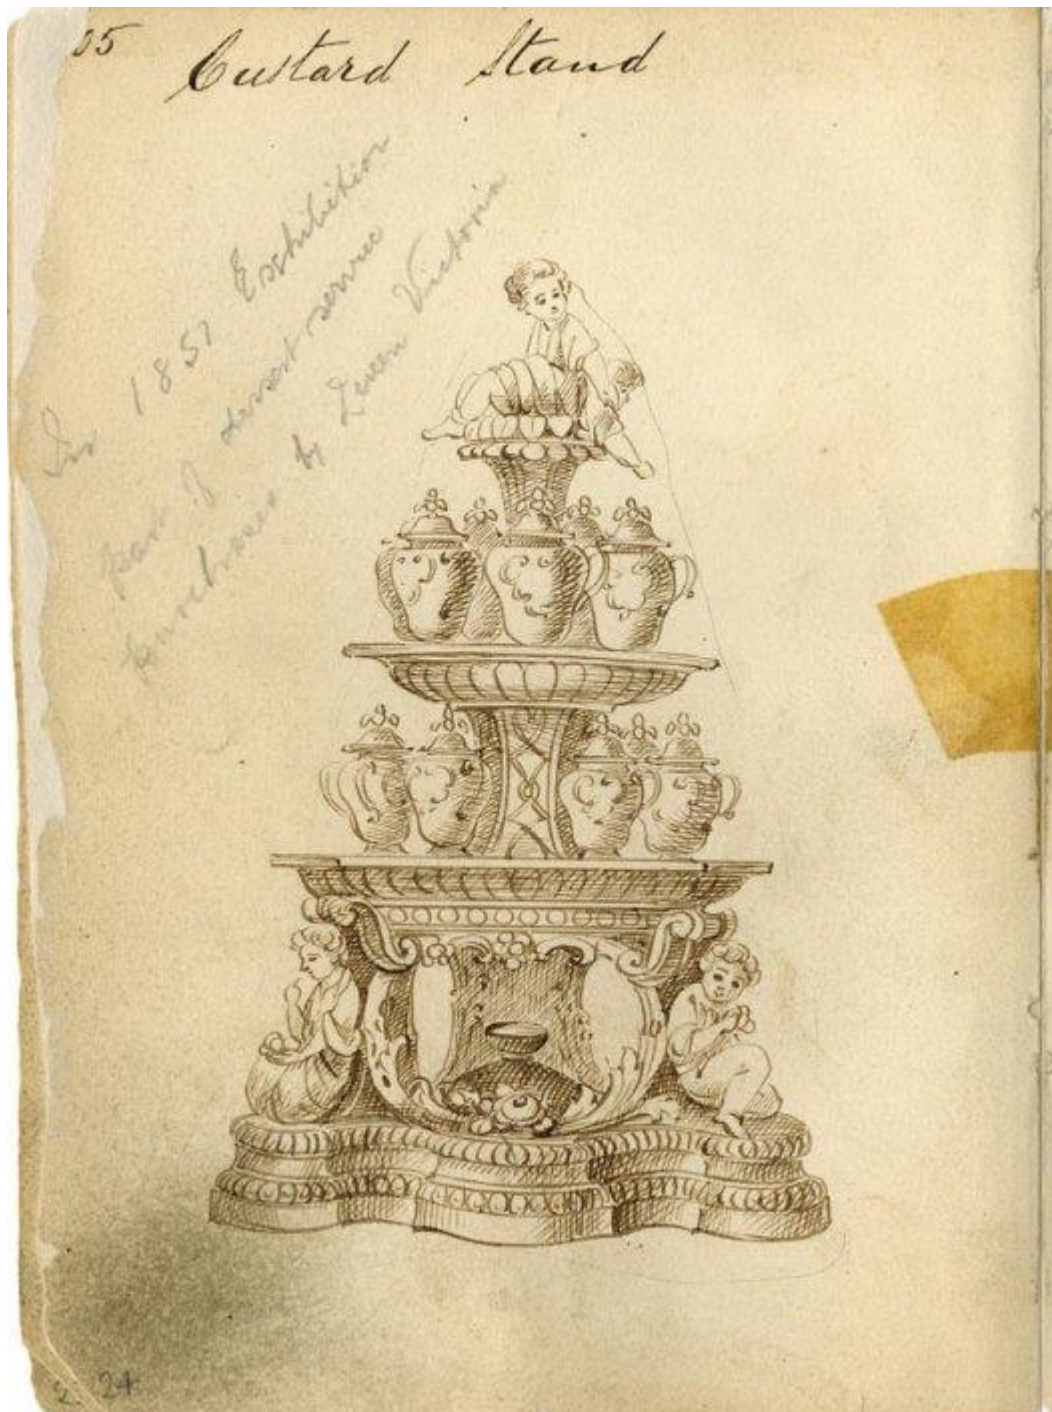 05
Custard Stand
In 1851 Exhibition
part of dessert service
purchased by Queen Victoria
24